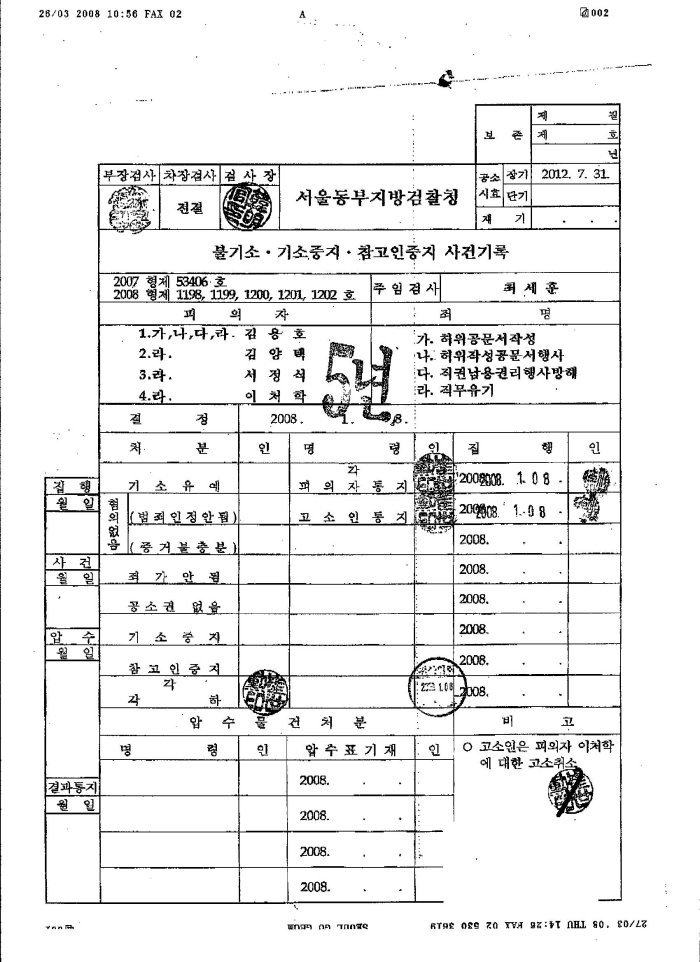 26/03 2008 10:56 FAX 02 A 002
보 존
제 질
제 호
년
부장검사 차장검사 검 사 장
전결
서울동부지방검찰청
공소시효 장기 2012. 7. 31.
단기
재 기 . . .
불기소·기소중지·참고인중지 사건기록
2007 형제 53406 호
2008 형제 1198, 1199, 1200, 1201, 1202 호
주 임 검 사 최 세 훈
피 의 자 죄 명
1.가,나,다,라. 김 용 호
2.라. 김 양 택
3.라. 서 정 식
4.라. 이 처 학
5년
가. 허위공문서작성
나. 허위작성공문서행사
다. 직권남용권리행사방해
라. 직무유기
결 정 2008. 1. 8.
처 분 인 명 령 인 집 행 인
집 행
월 일
기 소 유 예
각
피 의 자 통 지
2008. 1. 08 .
혐의없음
(범죄인정안됨)
고 소 인 통 지
2008. 1. 08 .
(증거불충분)
2008. . .
사 건
월 일
죄 가 안 됨
2008. . .
공소권 없음
2008. . .
압 수
월 일
기 소 중 지
2008. . .
참고인중지
2008. . .
각
각 하
2008. 1.08
2008. . .
압 수 물 건 처 분 비 고
명 령 인 압 수 표 기 재 인
○ 고소인은 피의자 이처학
에 대한 고소취소
결과통지
월 일
2008. . .
2008. . .
2008. . .
2008. . .
27/03 '08 THU 14:26 FAX 02 530 3619